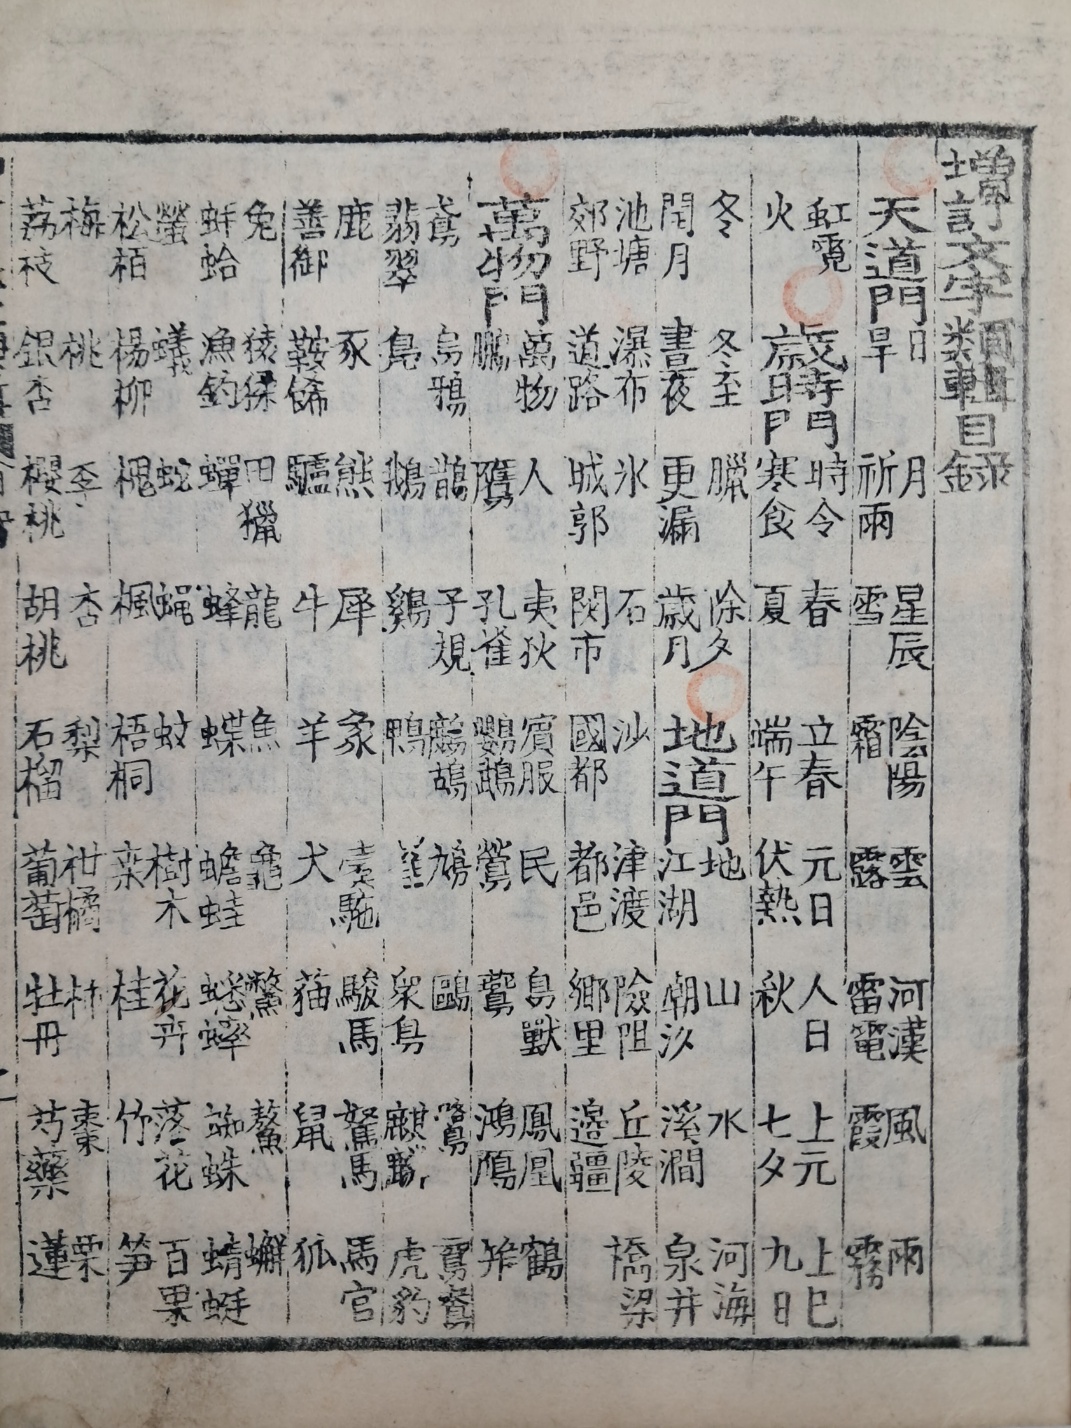 增訂文字類輯目録
天道門 日 月 星辰 陰陽 雲 河漢 風 雨
旱 祈雨 雪 霜 露 雷電 霞 霧
虹霓 歲時門 時令 春 立春 元日 人日 上元 上巳
火 寒食 夏 端午 伏熱 秋 七夕 九日
冬 冬至 臘 除夕 地道門 地 山 水 河海
閏月 晝夜 更漏 歲月 江湖 潮汐 溪澗 泉井
池塘 瀑布 氷 石 沙 津渡 險阻 丘陵 橋梁
郊野 道路 城郭 関市 國都 都邑 鄉里 邊疆
萬物門 萬物 人 夷狄 賔服 民 鳥獸 鳳凰 鶴
鵬 鷹 孔雀 鸚鵡 鶯 鷰 鴻鴈 雉
鳶 烏鴉 鵲 子規 鷓鴣 鳩 鷗 鷺 鴛鴦
翡翠 鳧 鵝 鷄 鴨 雀 衆鳥 麒麟 虎豹
鹿 豕 熊 犀 象 槖駞 駿馬 駑馬 馬官
善御 鞍 驢 牛 羊 犬 猫 鼠 狐
兔 猿猱 田獵 龍 魚 龜 鱉 鰲 蠏
蚌蛤 漁釣 蟬 蜂 蝶 蟾蛙 蟋蟀 蜘蛛 蜻蜓
螢 蟻 蛇 蝇 蚊 樹木 花卉 落花 百果
松栢 楊柳 槐 楓 梧桐 桂 竹 笋
梅 桃 李 杏 梨 柑橘 棗 栗
荔枝 銀杏 櫻桃 胡桃 石榴 葡萄 牡丹 芍藥 蓮